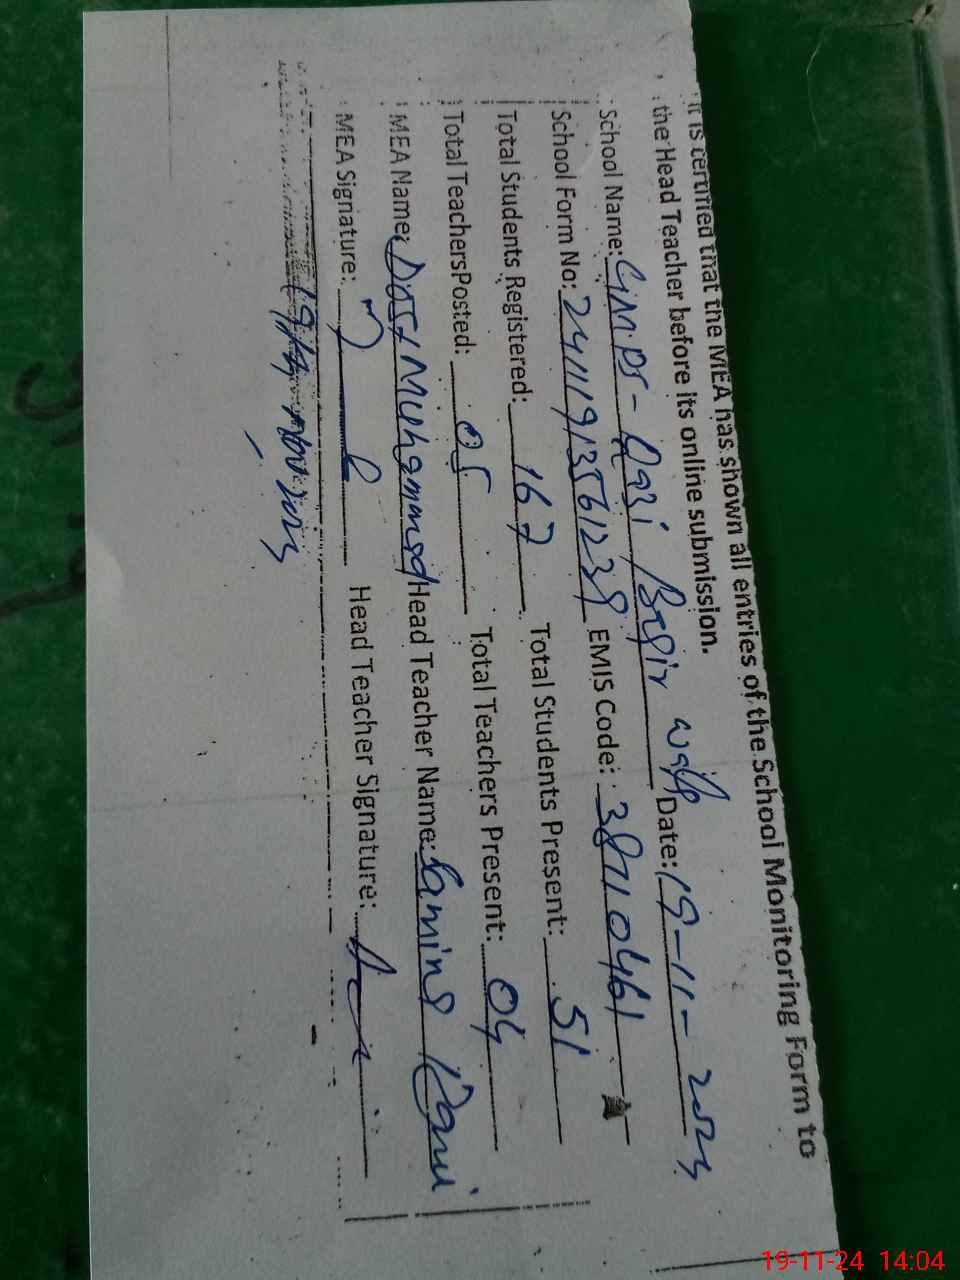 It is certified that the MEA has shown all entries of the School Monitoring Form to
the Head Teacher before its online submission.
School Name: GMPS- Qazi Bashir wala Date: 19-11-2024
School Form No: EMIS Code: 38710461
Total Students Registered: 167 Total Students Present: 51
Total TeachersPosted: 05 Total Teachers Present: 04
MEA Name: Dost Muhammad Head Teacher Name: Samina Rani
MEA Signature: Head Teacher Signature:
19-11-24 14:04